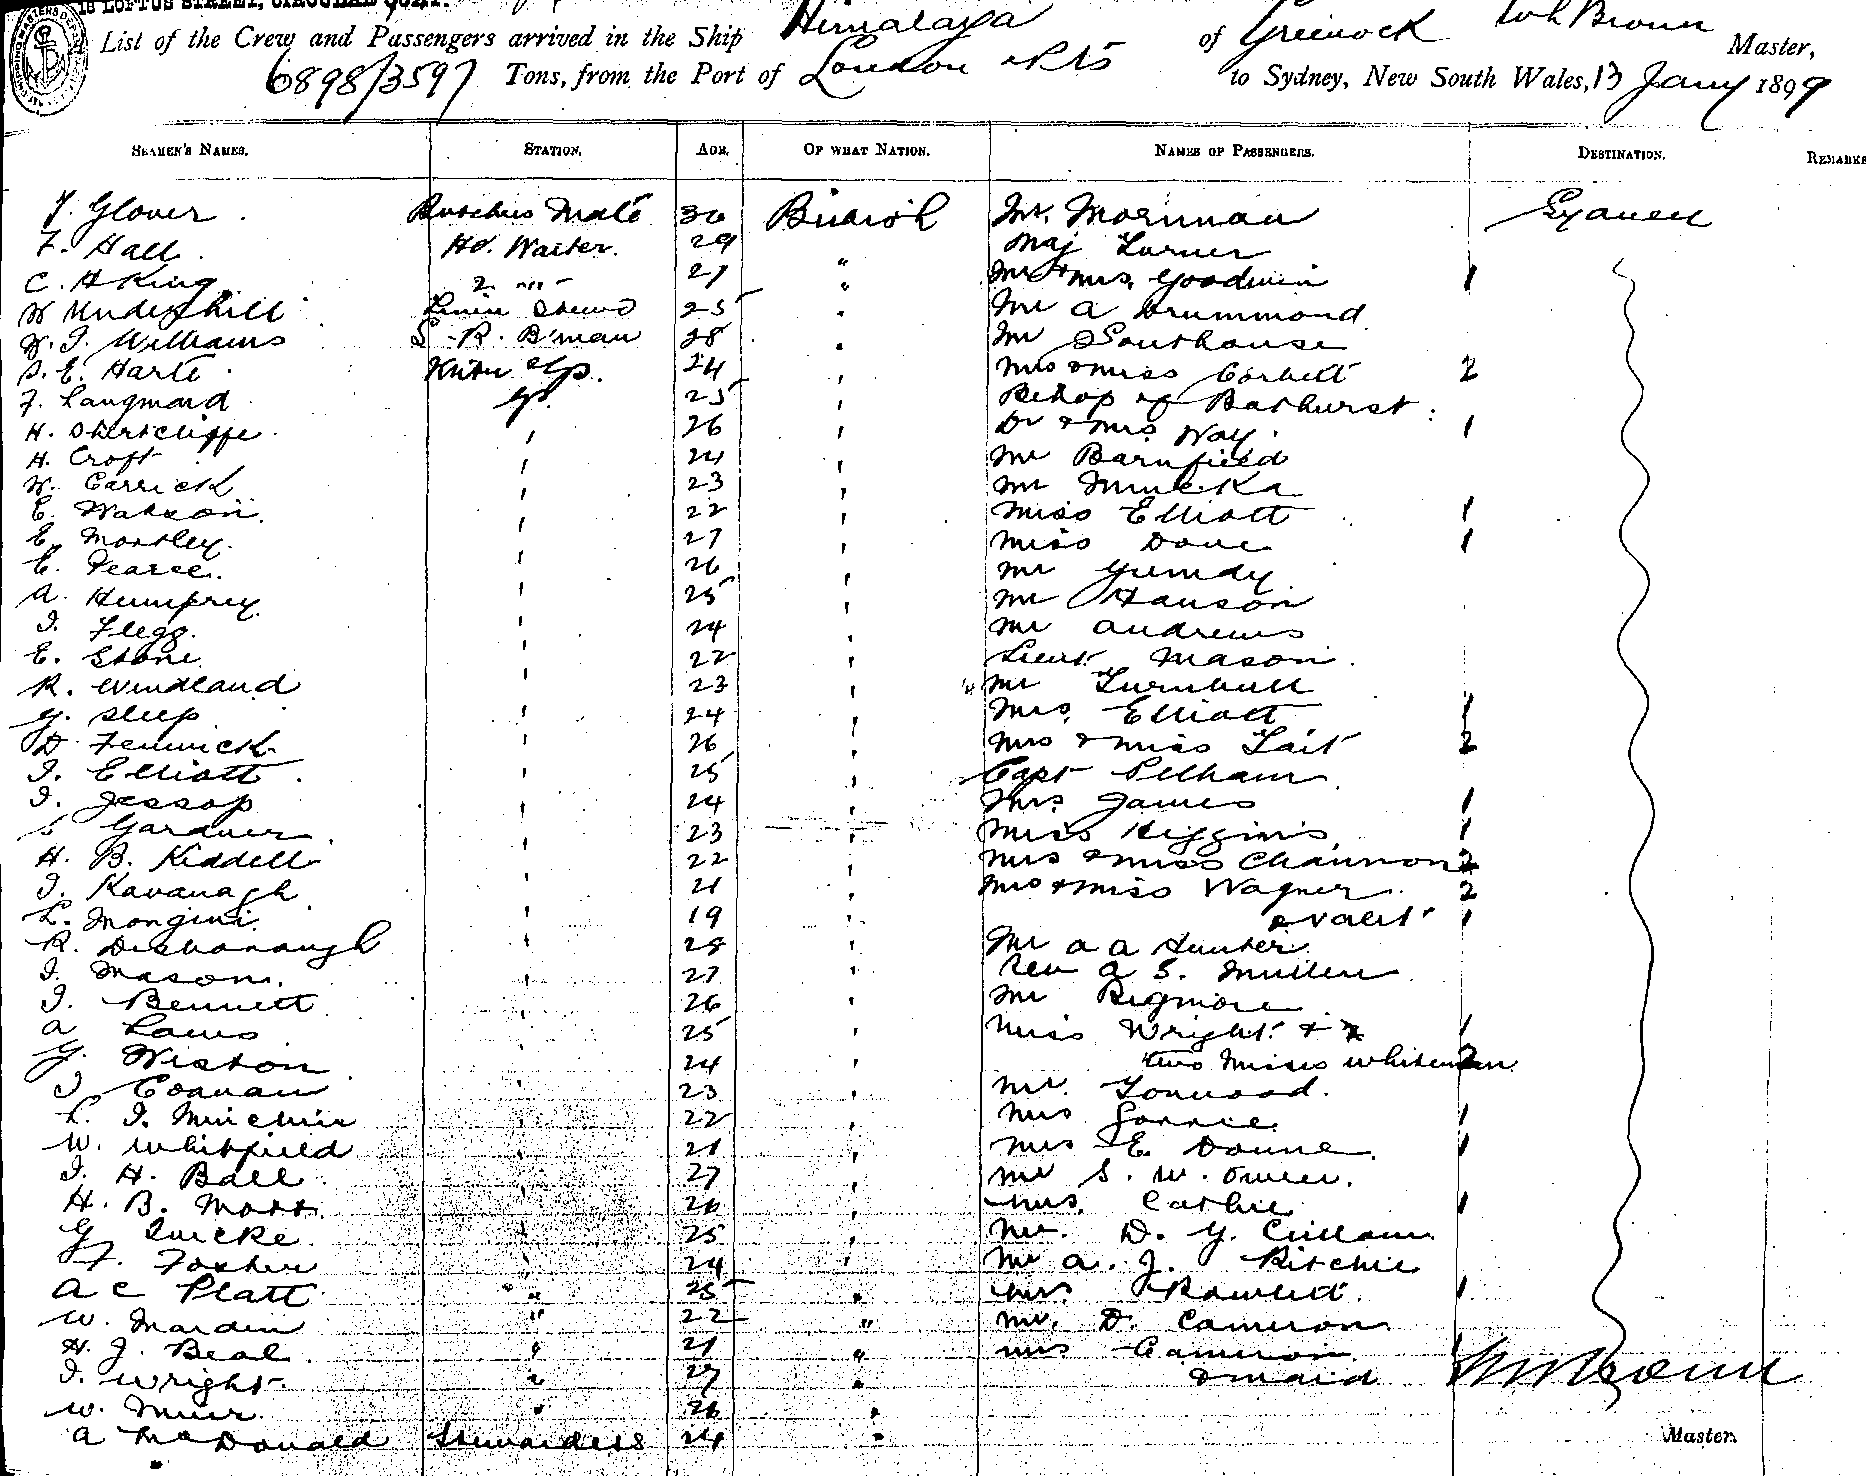 18 LOFTUS STREET, CIRCULAR QUAY.
List of the Crew and Passengers arrived in the Ship Himalaya of Greenock Wh Brown Master,
6898/3597 Tons, from the Port of London & Pts to Sydney, New South Wales, 13 Jany 1899
SEAMEN'S NAMES. STATION. AGE. OF WHAT NATION. NAMES OF PASSENGERS. DESTINATION. REMARKS
J. Glover Butchers Mate 30 British Mr. Mornnan
F. Hall Hd. Waiter. 29 " Maj Turner
C. H King 2 " " 27 " Mr & Mrs. Goodwin 1
W Underhill Linen 25 " Mr A Drummond
W. J. Williams S. R. B'man 28 " Mr Southouse
S. E. Harte 24 " Mrs & Miss Corbett 2
F. Langmaid 25 " Bishop of Bathurst
H. Shertcliffe 26 " Dr & Mrs Way 1
H. Croft " 24 " Mr Barnfield
W. Carrick " 23 " Mr
E. Watson. " 22 " Miss Elliott 1
E. Mostley. " 27 " Miss Dove 1
E. Pearce. " 26 " Mr Grundy
A. Humfrey. " 25 " Mr Hanson
J. Flegg. " 24 " Mr Andrews
E. Stone. " 22 " Lieut. Mason.
R. Windland " 23 " Mr Turnbull
G. Sleep " 24 " Mrs. Elliott 1
D. Fenwick " 26 " Mrs & Miss Tait 2
J. Elliott " 25 " Capt Pelham
J. Jessop " 24 " Mrs James 1
S Gardner " 23 " Miss Higgins 1
H. B. Kiddell " 22 " Mrs & Miss Channon 2
J. Kavanagh " 21 " Mrs & Miss Wagner 2
L. Mongini. " 19 " & valet 1
R. " 28 " Mr A A Hunter
J. Mason. " 27 " Rev A S. Mullen
J. Bennett " 26 " Mr Bigmore
A Laws " 25 " Miss Wright & 1
G. Weston " 24 " two Misses Whiteman 2
J Coanan " 23 " Mr. Tonwood.
L. J. Minchin " 22 " Mrs Gorrie 1
W. Whitfield " 21 " Mrs E. Donne 1
J. H. Ball " 27 " Mr S. W.
H. B. Mott. " 26 " Mrs. Cathie 1
G Quicke. " 25 " Mr. D. G.
J. F. Foster " 24 " Mr A. J. Ritchie
A C Platt " 25 " Mrs. Rowlett. 1
W. Marden " 22 " Mr. D. Cameron
H. J. Beal " 21 " Mrs Cameron
J. Wright " 27 " & maid
W. Muir. " 26 "
A McDonald Stewardess 24 " Master.